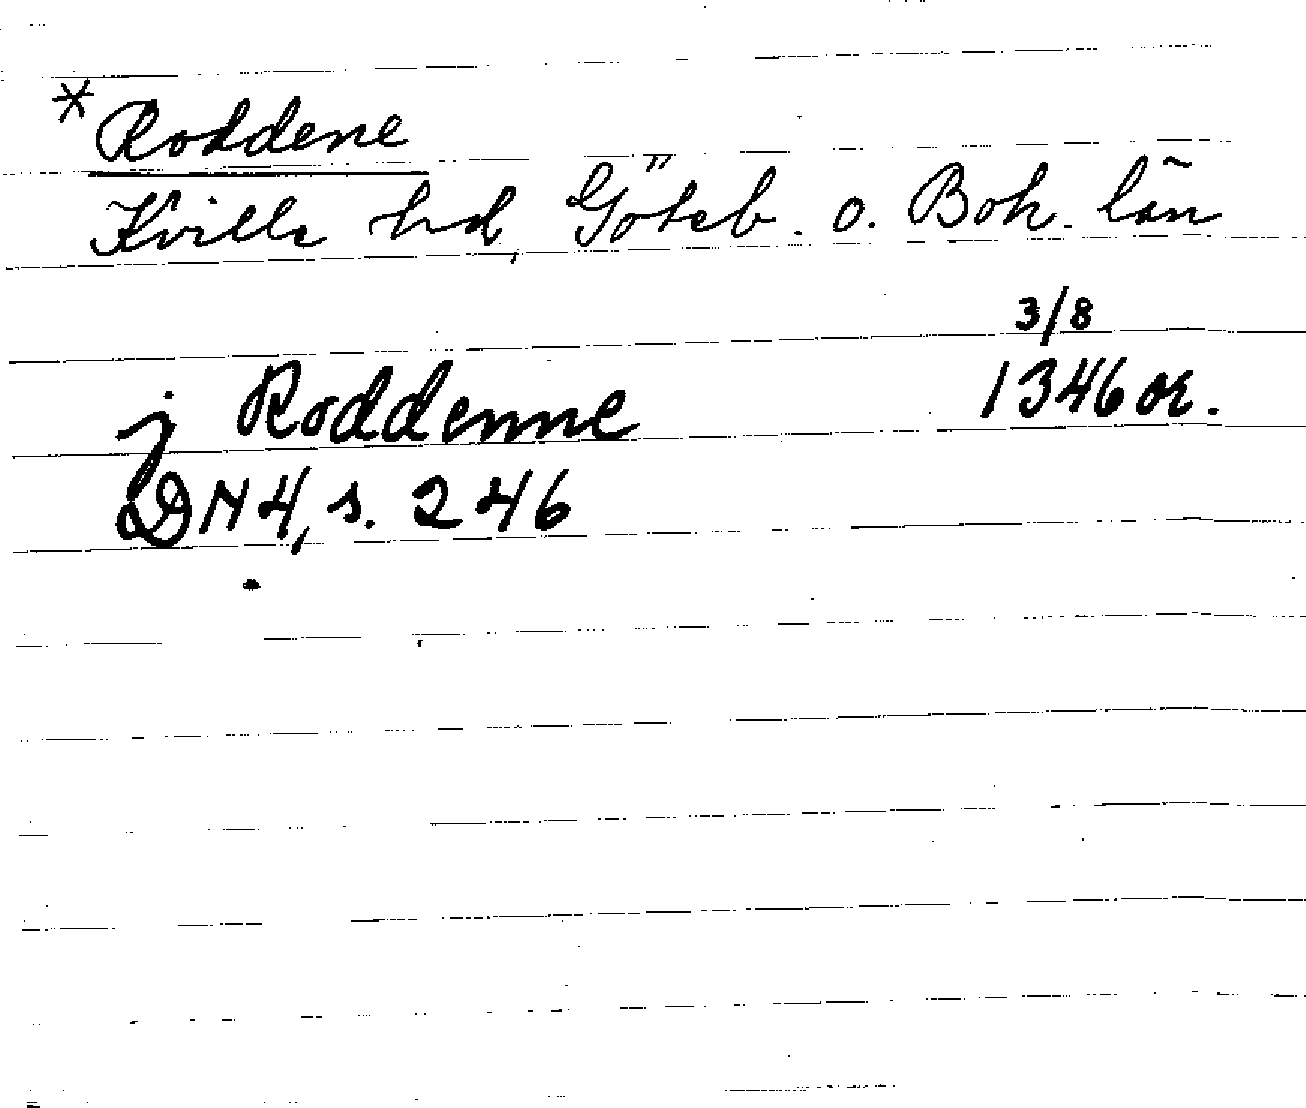 *Roddene
Kville hd, Göteb. o. Boh. län
3/8
j Roddenne 1346 or.
DN4, s. 246